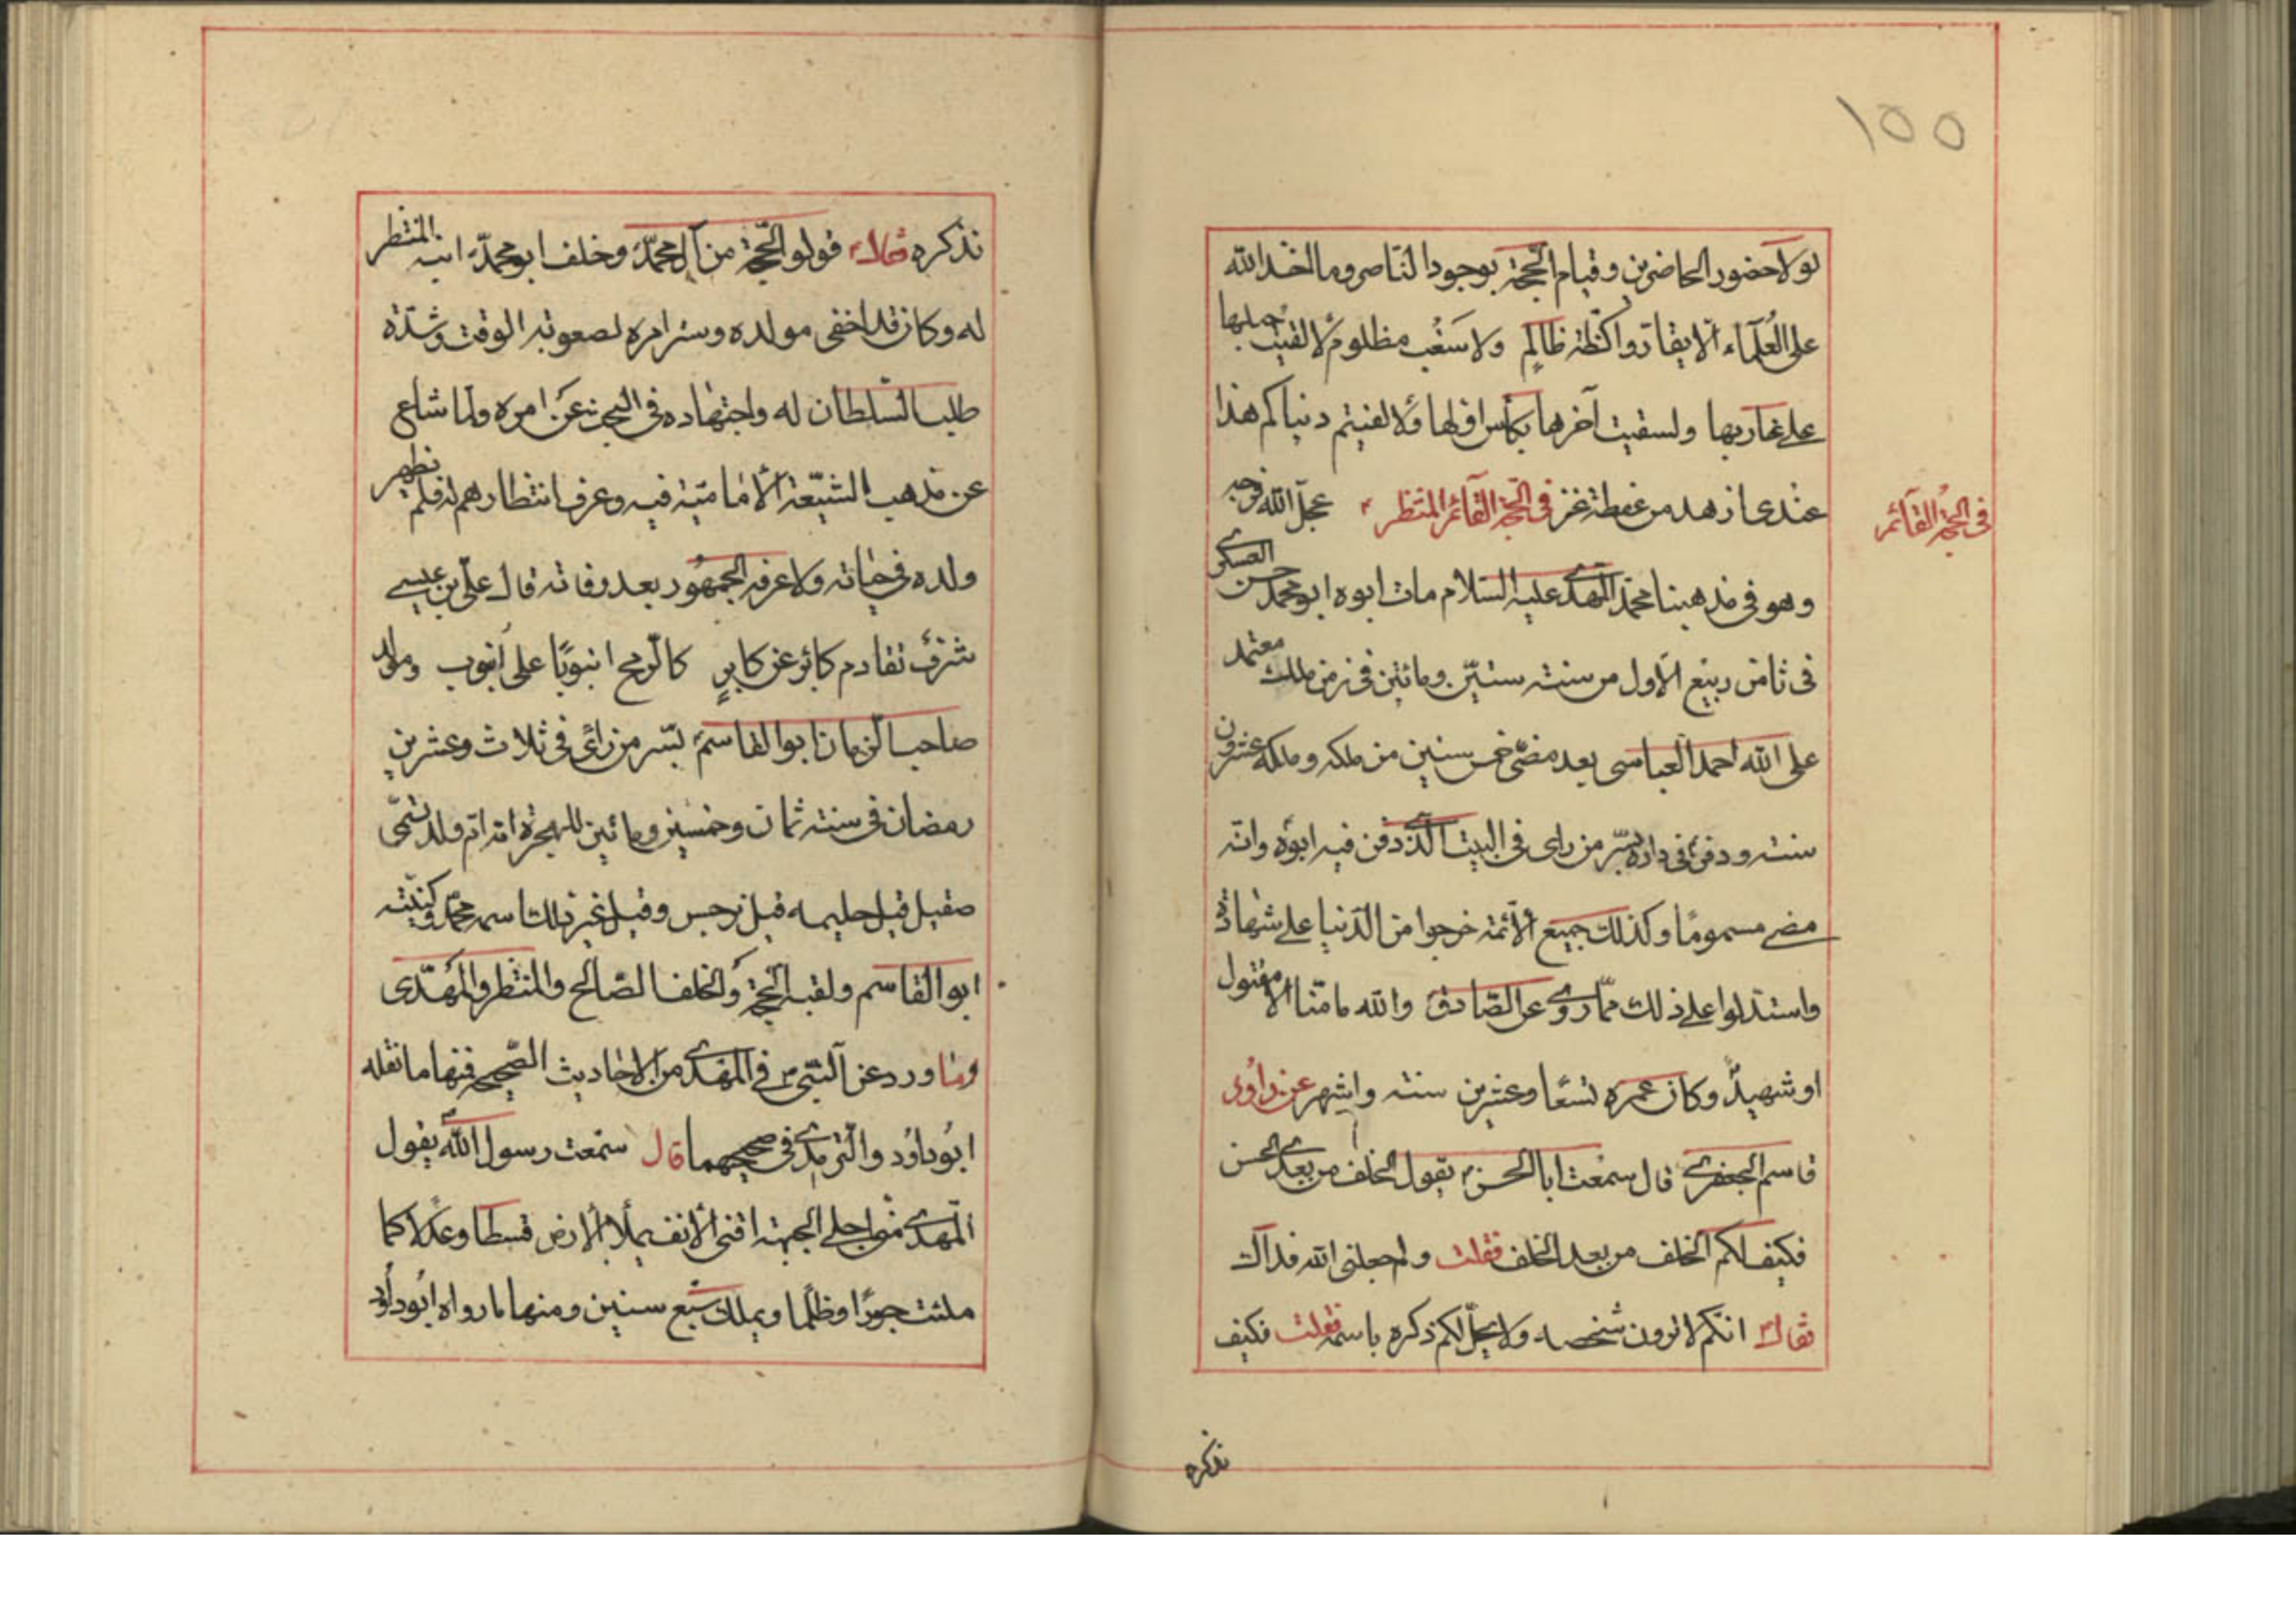 ١٥٥
لولا حضور الحاضرين وقيام الحجة بوجود الناصر وما اخذ الله
على العُلمآء الّا يقارّوا كظّة ظالمٍ ولا سَغَب مظلوم لالقيت حبلها
على غاربها ولسقيت آخرها بكأس اوّلها ولالفيتم دنياكم هذا
عندى ازهد من عفطة عنز فى الحجّة القآئم المنتظر عجل الله فرجه
فى الحجة القآئم
وهو فى مذهبنا محمّد المهدى عليه السّلام مات ابوه ابو محمد حسن العسكرى
فى ثامن ربيع الاول من سنته ستّين ومائتين فى زمن ملك معتمد
على الله احمد العباسى بعد مضىّ خمس سنين من ملكه وملكه عشرون
سنته ودفن فى داره بسّر من راى فى البيت الّذى دفن فيه ابوه وانّه
مضى مسموما وكذلك جميع الائمّة خرجوا من الدّنيا على شهادة
واستدلوا على ذلك ممّا روى عن الصّادق والله ما منّا الا مقتول
او شهيد وكان عمره تسعًا وعشرين سنته واشهر عن داود
قاسم الجعفرى قال سمعت ابا الحسن يقول الخلف من بعدى الحسن
فكيف لكم الخلف من بعد الخلف فقلت ولم جعلنى الله فداك
فقال انّكم لا ترون شخصه ولا يحلّ لكم ذكره باسمه فقلت فكيف
نذكره
نذكره فقال قولوا الحّجة من آل محمّد وخلف ابو محمّد ابنه المنتظر
له وكان قد اخفى مولده وستر امره لصعوبة الوقت وشدّة
طلب السّلطان له واجتهاده فى البحث عن امره ولما شاع
عن مذهب الشيّعة الاماميّة فيه وعرف انتظارهم له فلم يظهر
ولده فى حياته ولا عرفه الجمهور بعد وفاته قال علىّ بن عيسى
شرف تقادم كابر عن كابرٍ كالرّمح انبوبًا على انبوب ومولد
صاحب الزمان ابو القاسم بسّر من رأى فى ثلاث وعشرين
رمضان فى سنته ثمان وخمسين ومائتين للهجرة امّه امّ ولد تسمّى
صقيل قيل حليمه قيل نرجس وقيل غير ذلك اسمه محمّد وكنيّته
ابو القاسم ولقبه الحجة والخلف الصّالح والمنتظر والمهدّى
وما ورد عن النبّى فى المهدى من الاحاديث الصّحيحة فمنها ما نقله
ابوداود والتّرمذى فى صحيحهما قال سمعت رسول الله يقول
المهدى منى اجلى الجبهته اقنى الانف يملأ الارض قسطا وعدلا كما
ملئت جورًا وظلما ويملك سبع سنين ومنها ما رواه ابوداود